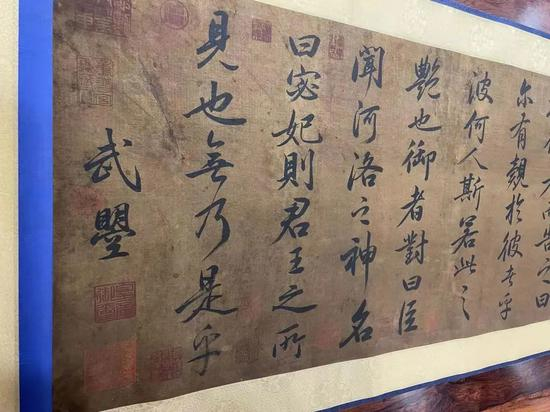 而告之曰
尓有覿於彼者乎
彼何人斯若此之
艷也御者對曰臣
聞河洛之神名
曰宓妃則君王之所
見也無乃是乎
武曌